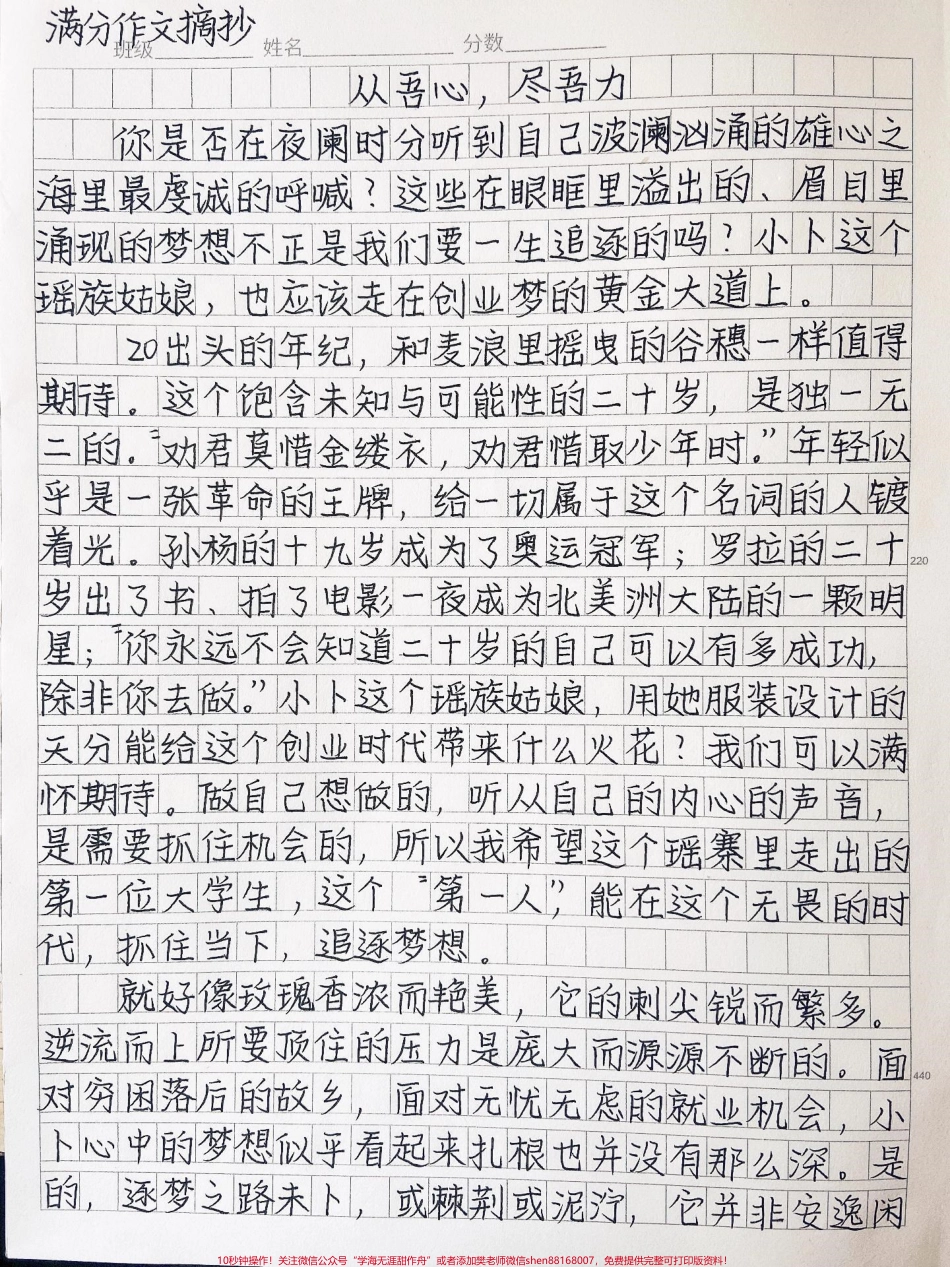 满分作文摘抄
班级 姓名 分数
从吾心，尽吾力
你是否在夜阑时分听到自己波澜汹涌的雄心之
海里最虔诚的呼喊？这些在眼眶里溢出的、眉目里
涌现的梦想不正是我们要一生追逐的吗？小卜这个
瑶族姑娘，也应该走在创业梦的黄金大道上。
20出头的年纪，和麦浪里摇曳的谷穗一样值得
期待。这个饱含未知与可能性的二十岁，是独一无
二的。“劝君莫惜金缕衣，劝君惜取少年时。”年轻似
乎是一张革命的王牌，给一切属于这个名词的人镀
着光。孙杨的十九岁成为了奥运冠军；罗拉的二十
220
岁出了书、拍了电影一夜成为北美洲大陆的一颗明
星；“你永远不会知道二十岁的自己可以有多成功，
除非你去做。”小卜这个瑶族姑娘，用她服装设计的
天分能给这个创业时代带来什么火花？我们可以满
怀期待。做自己想做的，听从自己的内心的声音，
是需要抓住机会的，所以我希望这个瑶寨里走出的
第一位大学生，这个“第一人”，能在这个无畏的时
代，抓住当下，追逐梦想。
就好像玫瑰香浓而艳美，它的刺尖锐而繁多。
逆流而上所要顶住的压力是庞大而源源不断的。面
440
对穷困落后的故乡，面对无忧无虑的就业机会，小
卜心中的梦想似乎看起来扎根也并没有那么深。是
的，逐梦之路未卜，或棘荆或泥泞，它并非安逸闲
10秒钟操作！关注微信公众号“学海无涯甜作舟”或者添加樊老师微信shen88168007，免费提供完整可打印版资料！